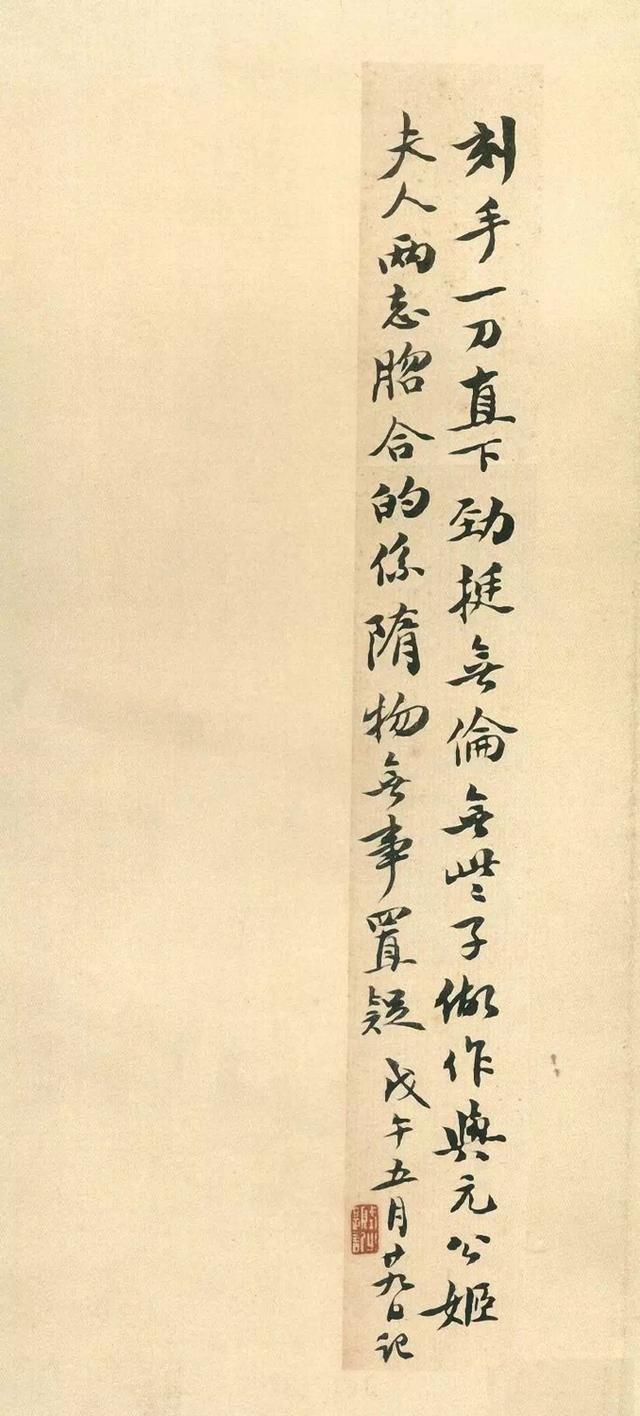 刻手一刀直下勁挺無倫無些子做作與元公姬
夫人兩志脗合的係隋物無事置疑 戊午五月廿九日記